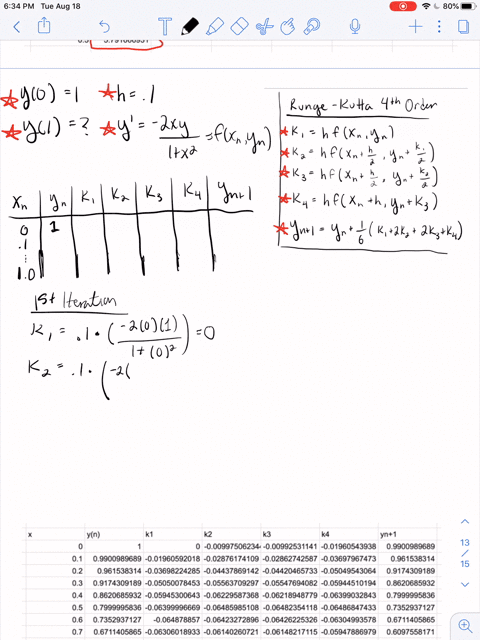 6:34 PM Tue Aug 18
80%
y(0) = 1 h = .1
y(1) = ? y' = -2xy / 1+x² = f(xn, yn)
Runge-Kutta 4th Order
K1 = h f(xn, yn)
K2 = h f(xn + h/2, yn + k1/2)
K3 = h f(xn + h/2, yn + k2/2)
K4 = h f(xn + h, yn + K3)
yn+1 = yn + 1/6 (K1 + 2K2 + 2K3 + K4)
xn yn K1 K2 K3 K4 yn+1
0 1
.1
⋮
1.0
1st Iteration
K1 = .1 · (-2(0)(1) / 1+(0)²) = 0
K2 = .1 · (-2(
x y(n) k1 k2 k3 k4 yn+1
0 1 0 -0.00997506234 -0.00992531141 -0.01960543938 0.9900989689
0.1 0.9900989689 -0.01960592018 -0.02876174109 -0.02862742587 -0.03697967473 0.961538314
0.2 0.961538314 -0.03698224285 -0.04437869142 -0.04420465733 -0.05049543064 0.9174309189
0.3 0.9174309189 -0.05050078453 -0.05563709297 -0.05547694082 -0.05944510194 0.8620685932
0.4 0.8620685932 -0.05945300643 -0.06229587368 -0.06218948779 -0.06399032843 0.7999995836
0.5 0.7999995836 -0.06399996669 -0.06485985108 -0.06482354118 -0.06486847433 0.7352937127
0.6 0.7352937127 -0.064878857 -0.06423272896 -0.06426225326 -0.06304993578 0.6711405865
0.7 0.6711405865 -0.06306018933 -0.06140260721 -0.06148217115 -0.05947886978 0.6097558171
13
15